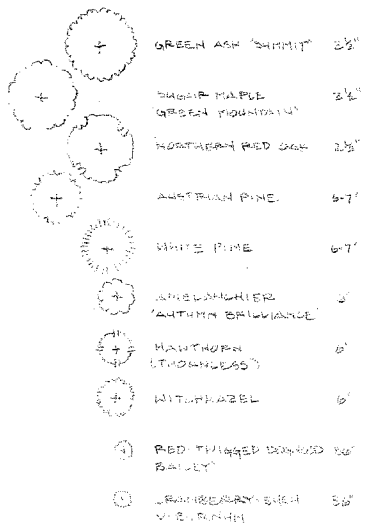 GREEN ASH "SUMMIT" 2½"
SUGAR MAPLE 2½"
"GREEN MOUNTAIN"
NORTHERN RED OAK 2½"
AUSTRIAN PINE 6-7'
WHITE PINE 6-7'
AMELANCHIER 6'
'AUTUMN BRILLIANCE'
HAWTHORN 6'
(THORNLESS)
WITCHHAZEL 6'
RED-TWIGGED DOGWOOD 36"
BAILEY
CRANBERRY BUSH 36"
VIBURNUM